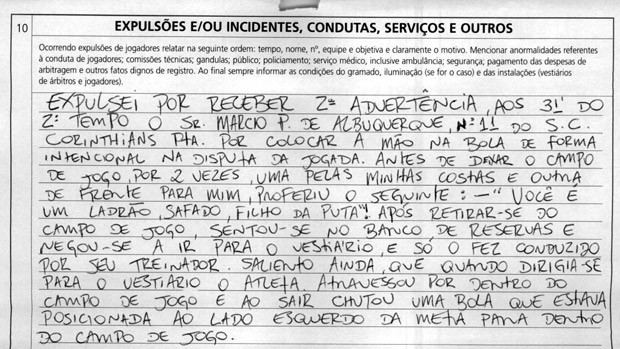 10
EXPULSÕES E/OU INCIDENTES, CONDUTAS, SERVIÇOS E OUTROS
Ocorrendo expulsões de jogadores relatar na seguinte ordem: tempo, nome, nº, equipe e objetiva e claramente o motivo. Mencionar anormalidades referentes
à conduta de jogadores; comissões técnicas; gandulas; público; policiamento; serviço médico, inclusive ambulância; segurança; pagamento das despesas de
arbitragem e outros fatos dignos de registro. Ao final sempre informar as condições do gramado, iluminação (se for o caso) e das instalações (vestiários
de árbitros e jogadores).
EXPULSEI POR RECEBER 2ª ADVERTÊNCIA, AOS 31' DO
2º TEMPO O SR. MARCIO P. DE ALBUQUERQUE, Nº 11 DO S.C.
CORINTHIANS PTA. POR COLOCAR A MÃO NA BOLA DE FORMA
INTENCIONAL NA DISPUTA DA JOGADA. ANTES DE DEIXAR O CAMPO
DE JOGO, POR 2 VEZES, UMA PELAS MINHAS COSTAS E OUTRA
DE FRENTE PARA MIM, PROFERIU O SEGUINTE: - "VOCÊ É
UM LADRÃO, SAFADO, FILHO DA PUTA"! APÓS RETIRAR-SE DO
CAMPO DE JOGO, SENTOU-SE NO BANCO DE RESERVAS E
NEGOU-SE A IR PARA O VESTIÁRIO, E SÓ O FEZ CONDUZIDO
POR SEU TREINADOR. SALIENTO AINDA, QUE QUANDO DIRIGIA-SE
PARA O VESTIÁRIO O ATLETA ATRAVESSOU POR DENTRO DO
CAMPO DE JOGO E AO SAIR CHUTOU UMA BOLA QUE ESTAVA
POSICIONADA AO LADO ESQUERDO DA META PARA DENTRO
DO CAMPO DE JOGO.